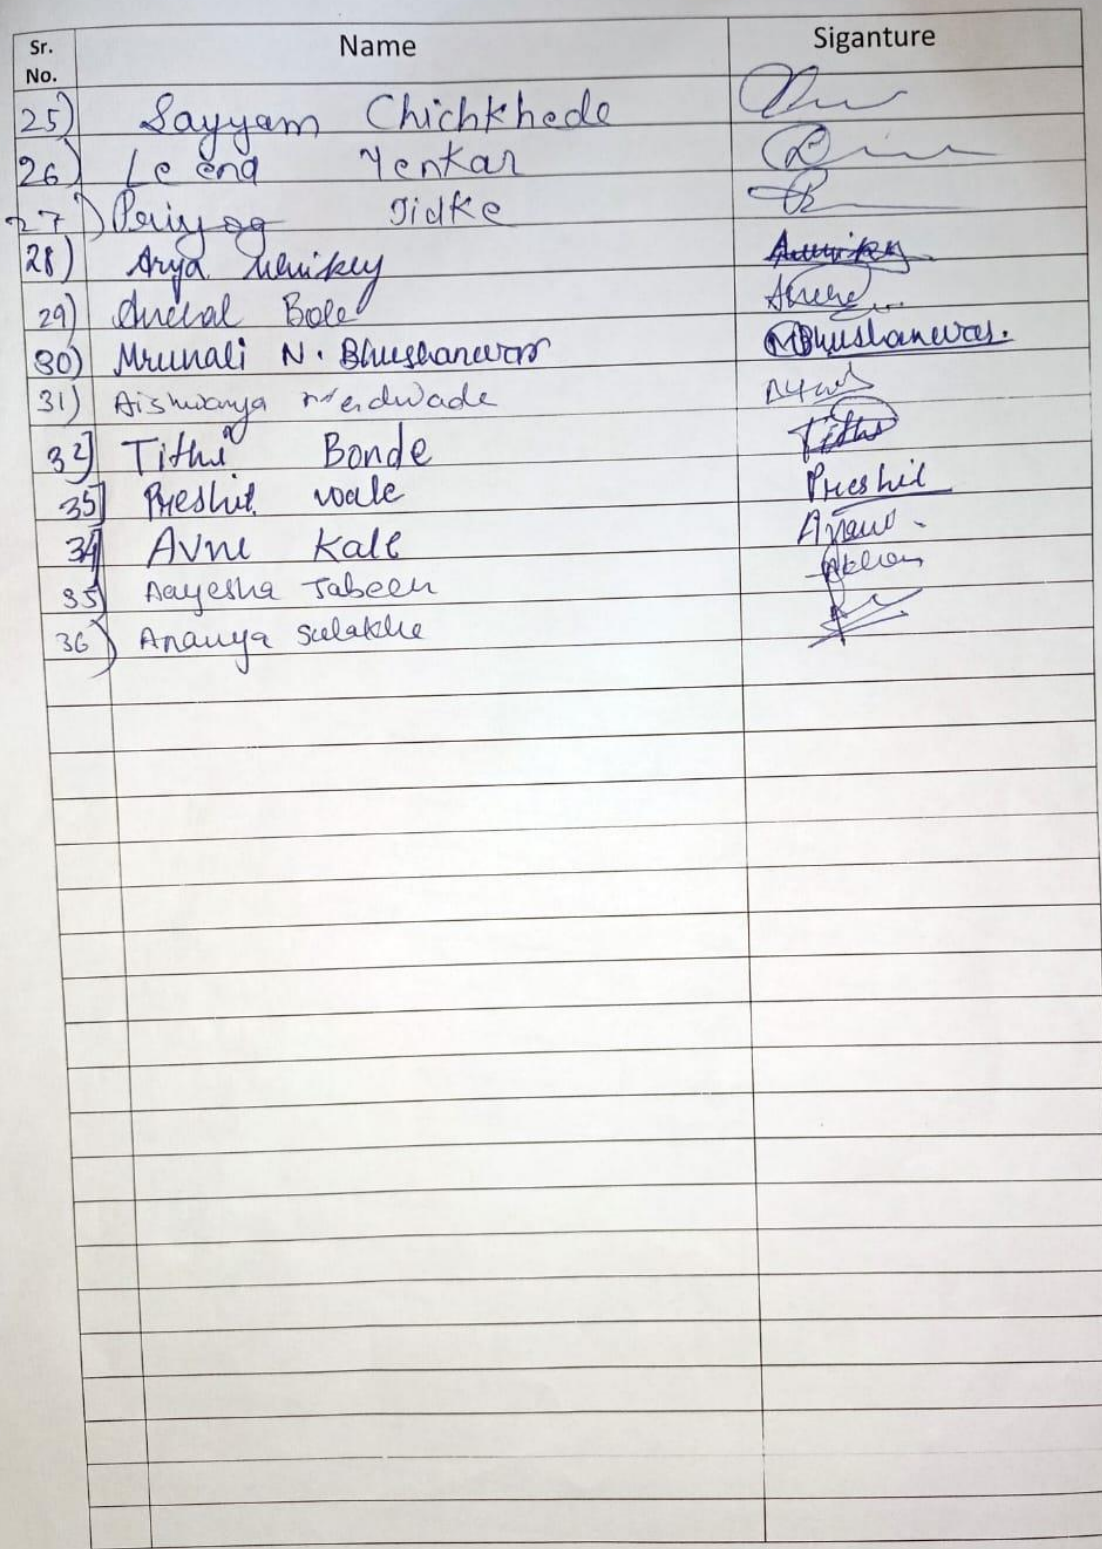 Sr. No. Name Siganture
25) Sayyam Chichkhede
26) Leena Yenkar
27) Jidke
28) Arya
29) Bole
30) Mrunali N. Bhushanwar MBhushanwar.
31) Aishwarya
32] Tithi Bonde Tithi
35] Preshil wale Preshil
34] Avni Kale
35) Aayesha Tabeen
36) Ananya Sulakhe